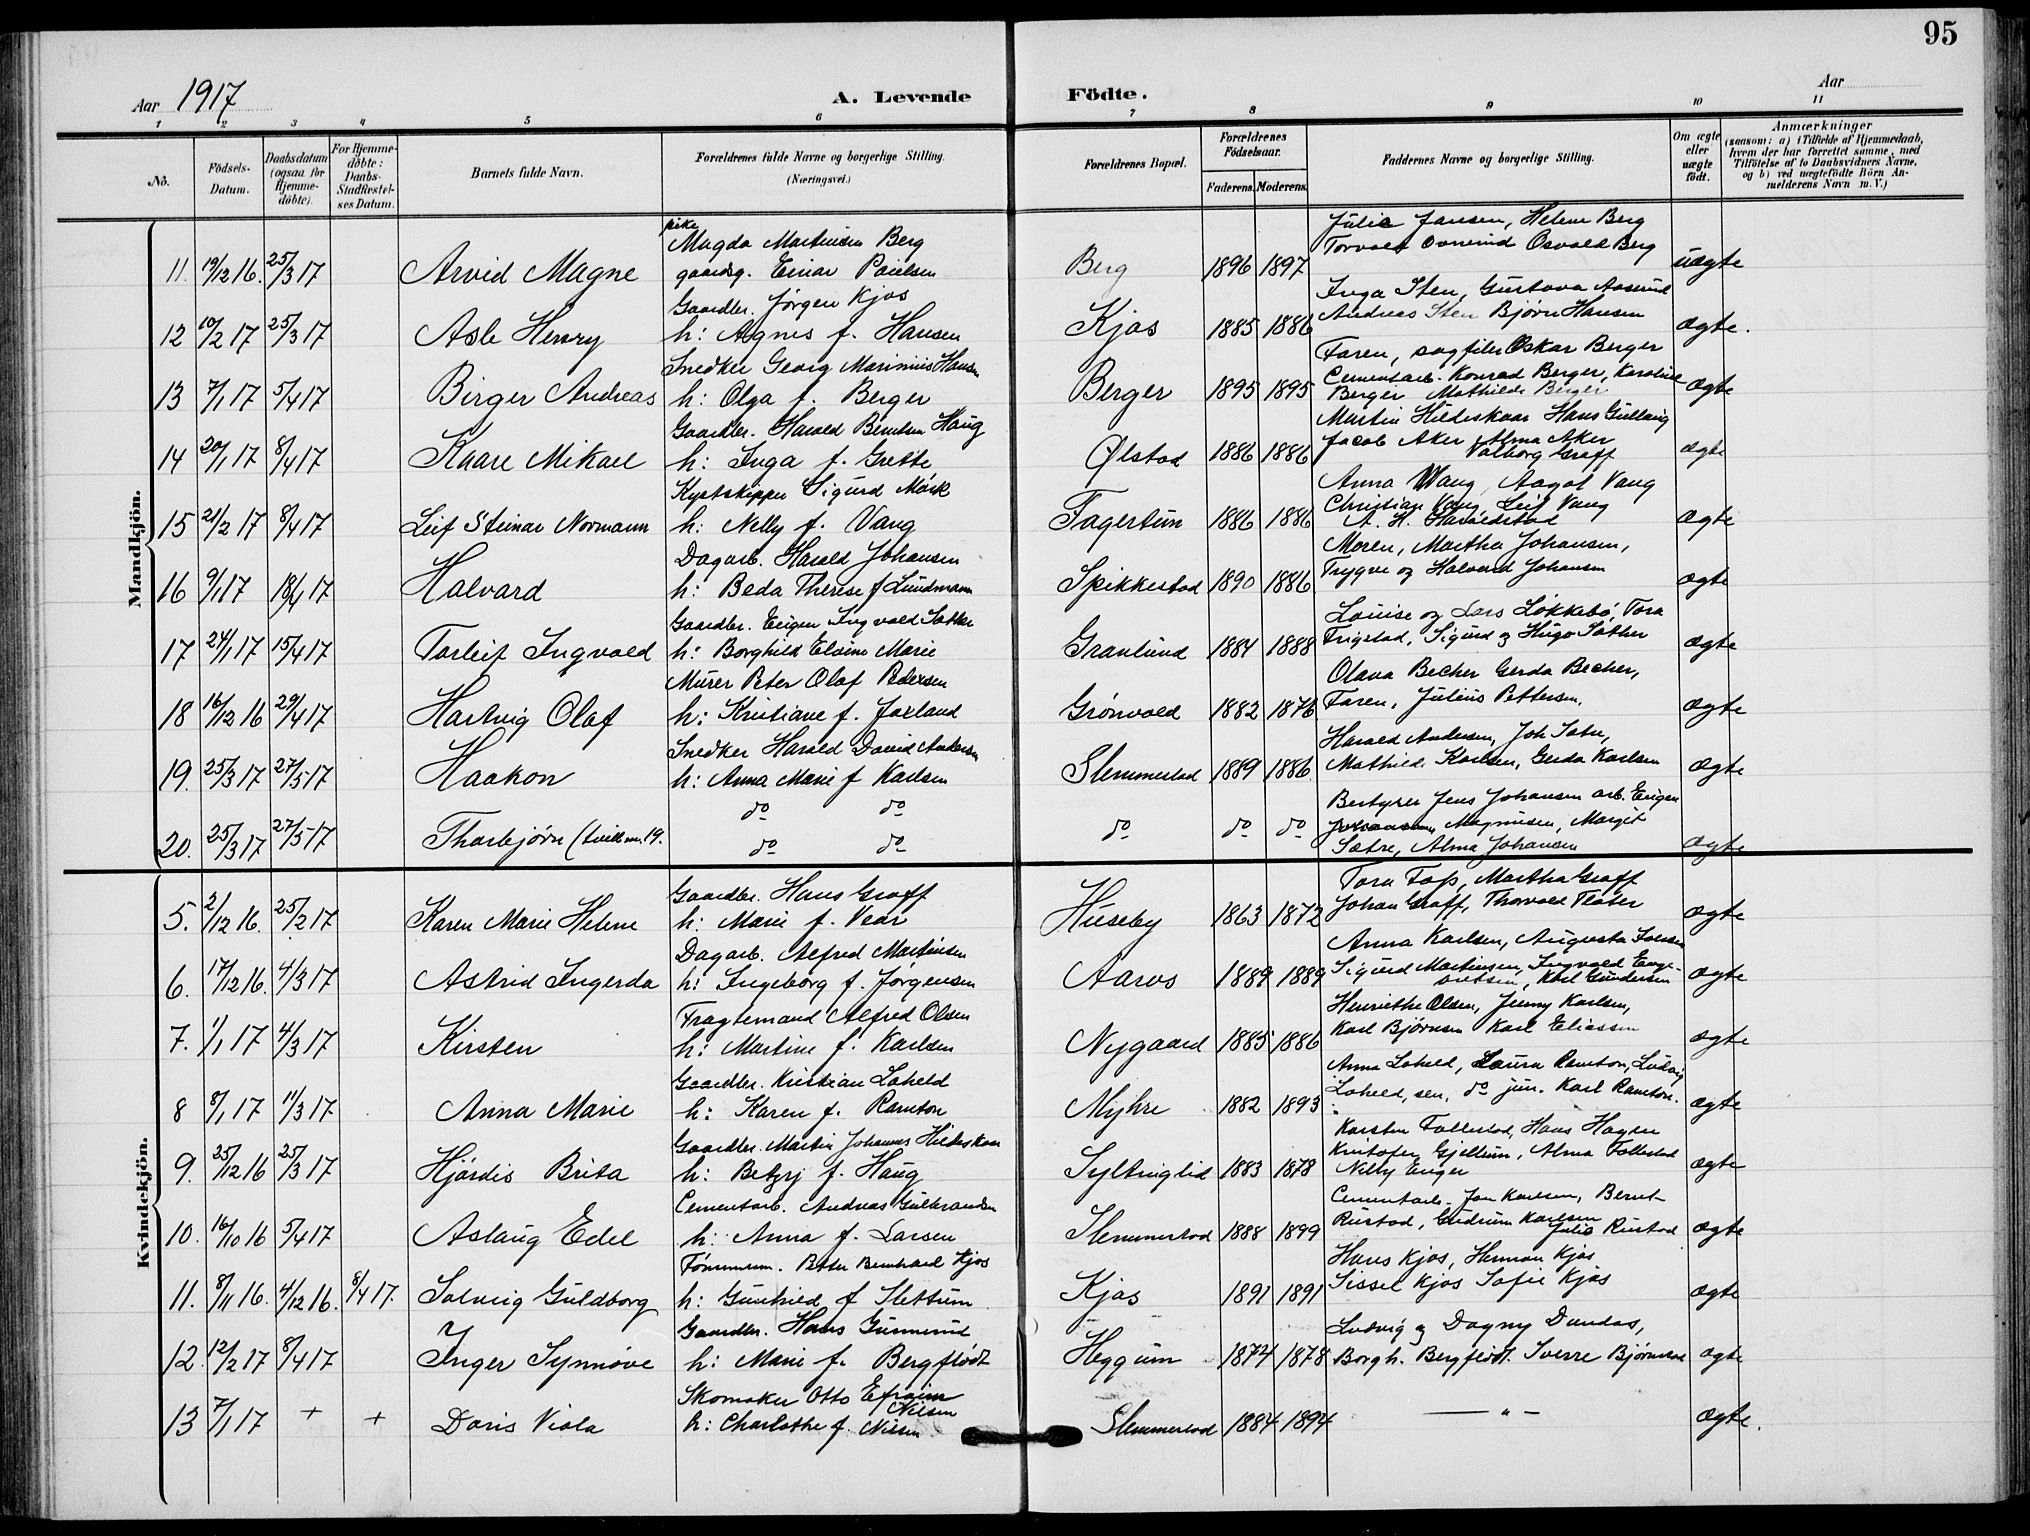 95
Aar 1917
A. Levende
Fødte.
Aar
1 2 3 4 5 6 7 8 9 10 11
No.
Fødsels-Datum.
Daabsdatum (ogsaa for Hjemmedøbte).
For Hjemmedøbte: Daabs-Stadfæstelses Datum.
Barnets fulde Navn.
Forældrenes fulde Navne og borgerlige Stilling.
(Næringsvei.)
Forældrenes Bopæl.
Forældrenes Fødselsaar.
Faderens. Moderens.
Faddernes Navne og borgerlige Stilling.
Om ægte eller uægte født.
Anmærkninger
(saasom: a) i Tilfælde af Hjemmedaab, hvem der har forrettet samme, med Tilføielse af to Daabsvidners Navne, og b) ved uægtefødte Børn Anmelderens Navn m. V.)
Mandkjön.
pike
Magda Martinsen Berg
Julie Jansen, Helene Berg
11. 19/12 16. 25/3 17 Arvid Magne gaardsg. Einar Paulsen Berg 1896 1897 Torvald Osvald Berg uægte
Gaardbr. Jørgen Kjos
Inga Sten, Gustava Aaserud
12 10/2 17 25/3 17 Asle Henry h: Agnes f. Hansen Kjos 1885 1886 Andreas Sten Bjørn Hansen ægte.
Snedker Georg Marinius Hansen
Faren, sagfiler Oskar Berger
Cementarb. Konrad Berger, Karoline
13 7/1 17 5/4 17 Birger Andreas h: Olga f. Berger Berger 1895 1895 Berger Mathilde Berger ægte
Gaardbr. Harald Berntsen Haug
Martin Hildeskaar Hans Gullaug
14 20/1 17 8/4 17 Kaare Mikael h: Inga f. Grette Ølstad 1886 1886 Jacob Aker Alma Aker Valborg Graff ægte
Kystskipper Sigurd Mørk
Anna Vang, Aagot Vang
Christian Vang, Leif Vang
15 21/2 17 8/4 17 Leif Steinar Normann h: Nelly f. Vang Fagertun 1886 1886 A. H. ægte
Dagarb. Harald Johansen
Moren, Martha Johansen,
16 9/1 17 18/4 17 Halvard h: Beda Therese f Lundmann Spikkestad 1890 1886 Trygve og Halvard Johansen ægte
Gaardbr. Eugen Ingvald Sather
Louise og Lars Løkkebø, Tora
17 24/1 17 15/4 17 Torleif Ingvald h: Borghild Elvine Marie Granlund 1884 1888 Frigstad, Sigurd og Hugo Sather ægte
Murer Peter Olaf Pedersen
Olava Becher Gerda Becher,
18 16/12 16 29/4 17 Hartvig Olaf h: Kristiane f. Joxland Grønvold 1882 1876 Faren, Julius Pettersen, ægte
Snedker Harald David Andersen
Harald Andersen, Joh Satre,
19. 25/3 17 27/5 17 Haakon h: Anna Marie f Karlsen Slemmestad 1889 1886 Mathilde Karlsen, Gerda Karlsen ægte
do do
Bestyrer Jens Johansen arb. Eugen
20. 25/3 17 27/5 17 Thorbjørn (tvill. m. 19. do do do do do Johansen Magnusen, Margit
Sætre, Alma Johansen ægte
Kvindekjön.
Gaardbr. Hans Graff
Tora Foss, Martha Graff
5. 2/12 16. 25/2 17 Karen Marie Helene h: Marie f. Vear Huseby 1863 1872 Johan Graff, Thorvald Flåter ægte
Dagarb. Alfred Martinsen
Anna Karlsen, Augusta
6. 17/12 16. 4/3 17 Astrid Ingerda h: Ingeborg f. Jørgensen Aaros 1889 1889 Sigurd Martinsen, Ingvald Enge-
bretsen, Karl Gundersen ægte
Fragtemand Alfred Olsen
Henriethe Olsen, Jenny Karlsen,
7. 1/1 17 4/3 17 Kirsten h: Martine f. Karlsen Nygaard 1885 1886 Karl Bjørnsen Karl Eliassen ægte
Gaardbr. Kristian Loheld
Anna Loheld, Laura Ramton, Ludvig
8 8/1 17 11/3 17 Anna Marie h: Karen f. Ramton Myhre 1882 1893 Loheld, sen. do jun. Karl Ramton. ægte
Gaardbr. Martin Johannes Hildeskaar
Karsten Follestad, Hans Hagen
Kristofer Gjellum, Alma Follestad
9. 25/12 16 25/3 17 Hjördis Brita h: Betzy f. Haug Syltinglid 1883 1878 Nelly Enger ægte
Cementarb. Andreas Gulbrandsen
Cementarb. Jon Karlsen, Bernt
10. 16/10 16 5/4 17 Aslaug Edel h: Anna f. Larsen Slemmestad 1888 1899 Rustad, Gudrun Karlsen Julie Rustad ægte
Tømmerm. Petter Bernhard Kjos
Hans Kjos, Herman Kjos
11. 8/11 16. 4/12 16. 8/4 17. Solveig Guldborg h: Gunhild f Slettum Kjos 1891 1891 Sissel Kjos Sofie Kjos ægte
Gaardbr. Hans Gunnerud
Ludvig og Dagny Dundas,
12. 12/2 17 8/4 17 Inger Synnøve h: Marie f. Bergflödt Heggum 1874 1878 Borgh. Bergflödt. Sverre Bjørnstad ægte
Skomaker Otto Efraim
Nilsen
13 7/1 17 + + Doris Viola h: Charlothe f. Nilsen Slemmestad 1884 1894 — " — ægte.